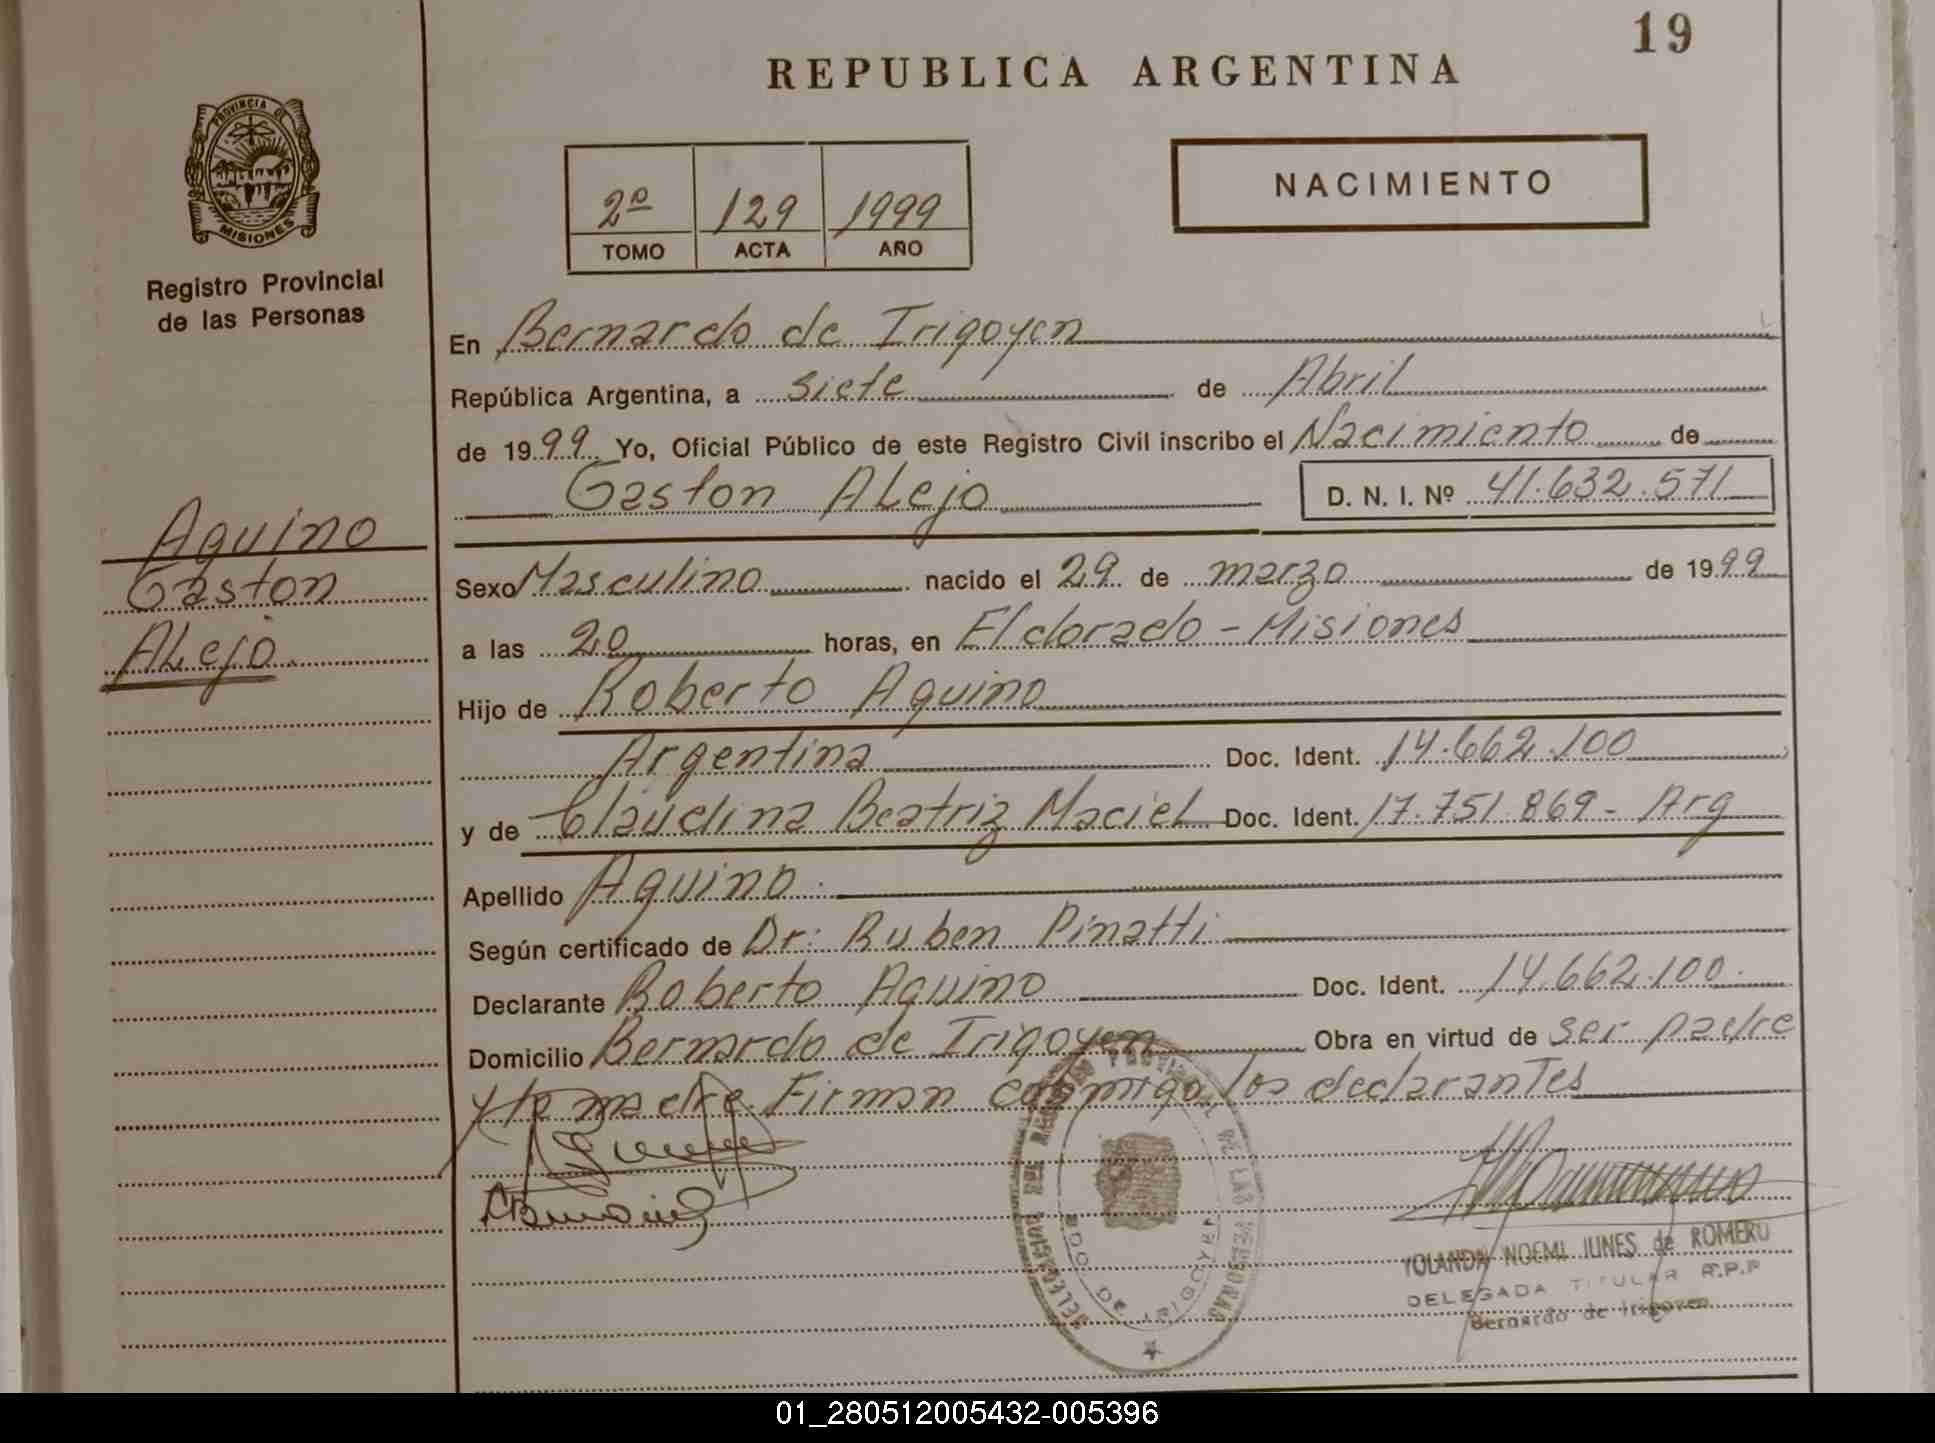 19
REPUBLICA ARGENTINA
PROVINCIA DE
MISIONES
Registro Provincial
de las Personas
2º 129 1999
TOMO ACTA AÑO
NACIMIENTO
En Bernardo de Irigoyen
República Argentina, a siete de Abril
de 1999 Yo, Oficial Público de este Registro Civil inscribo el Nacimiento de
Gaston ALejo D. N. I. Nº 41.632.571
Aquino
Gaston
ALejo
Sexo Masculino nacido el 29 de marzo de 1999
a las 20 horas, en Eldorado - Misiones
Hijo de Roberto Aquino
Argentina Doc. Ident. 14.662.100
y de Claudina Beatriz Maciel Doc. Ident. 17.751.869 - Arg
Apellido Aquino
Según certificado de Dr: Ruben Pinatti
Declarante Roberto Aquino Doc. Ident. 14.662.100
Domicilio Bernardo de Irigoyen Obra en virtud de ser padre
y la madre. Firman conmigo los declarantes
DE LAS PERSONAS
BDO. DE IRIGOYEN
YOLANDA NOEMI IUNES de ROMERO
DELEGADA TITULAR R.P.P
Bernardo de Irigoyen
01_280512005432-005396